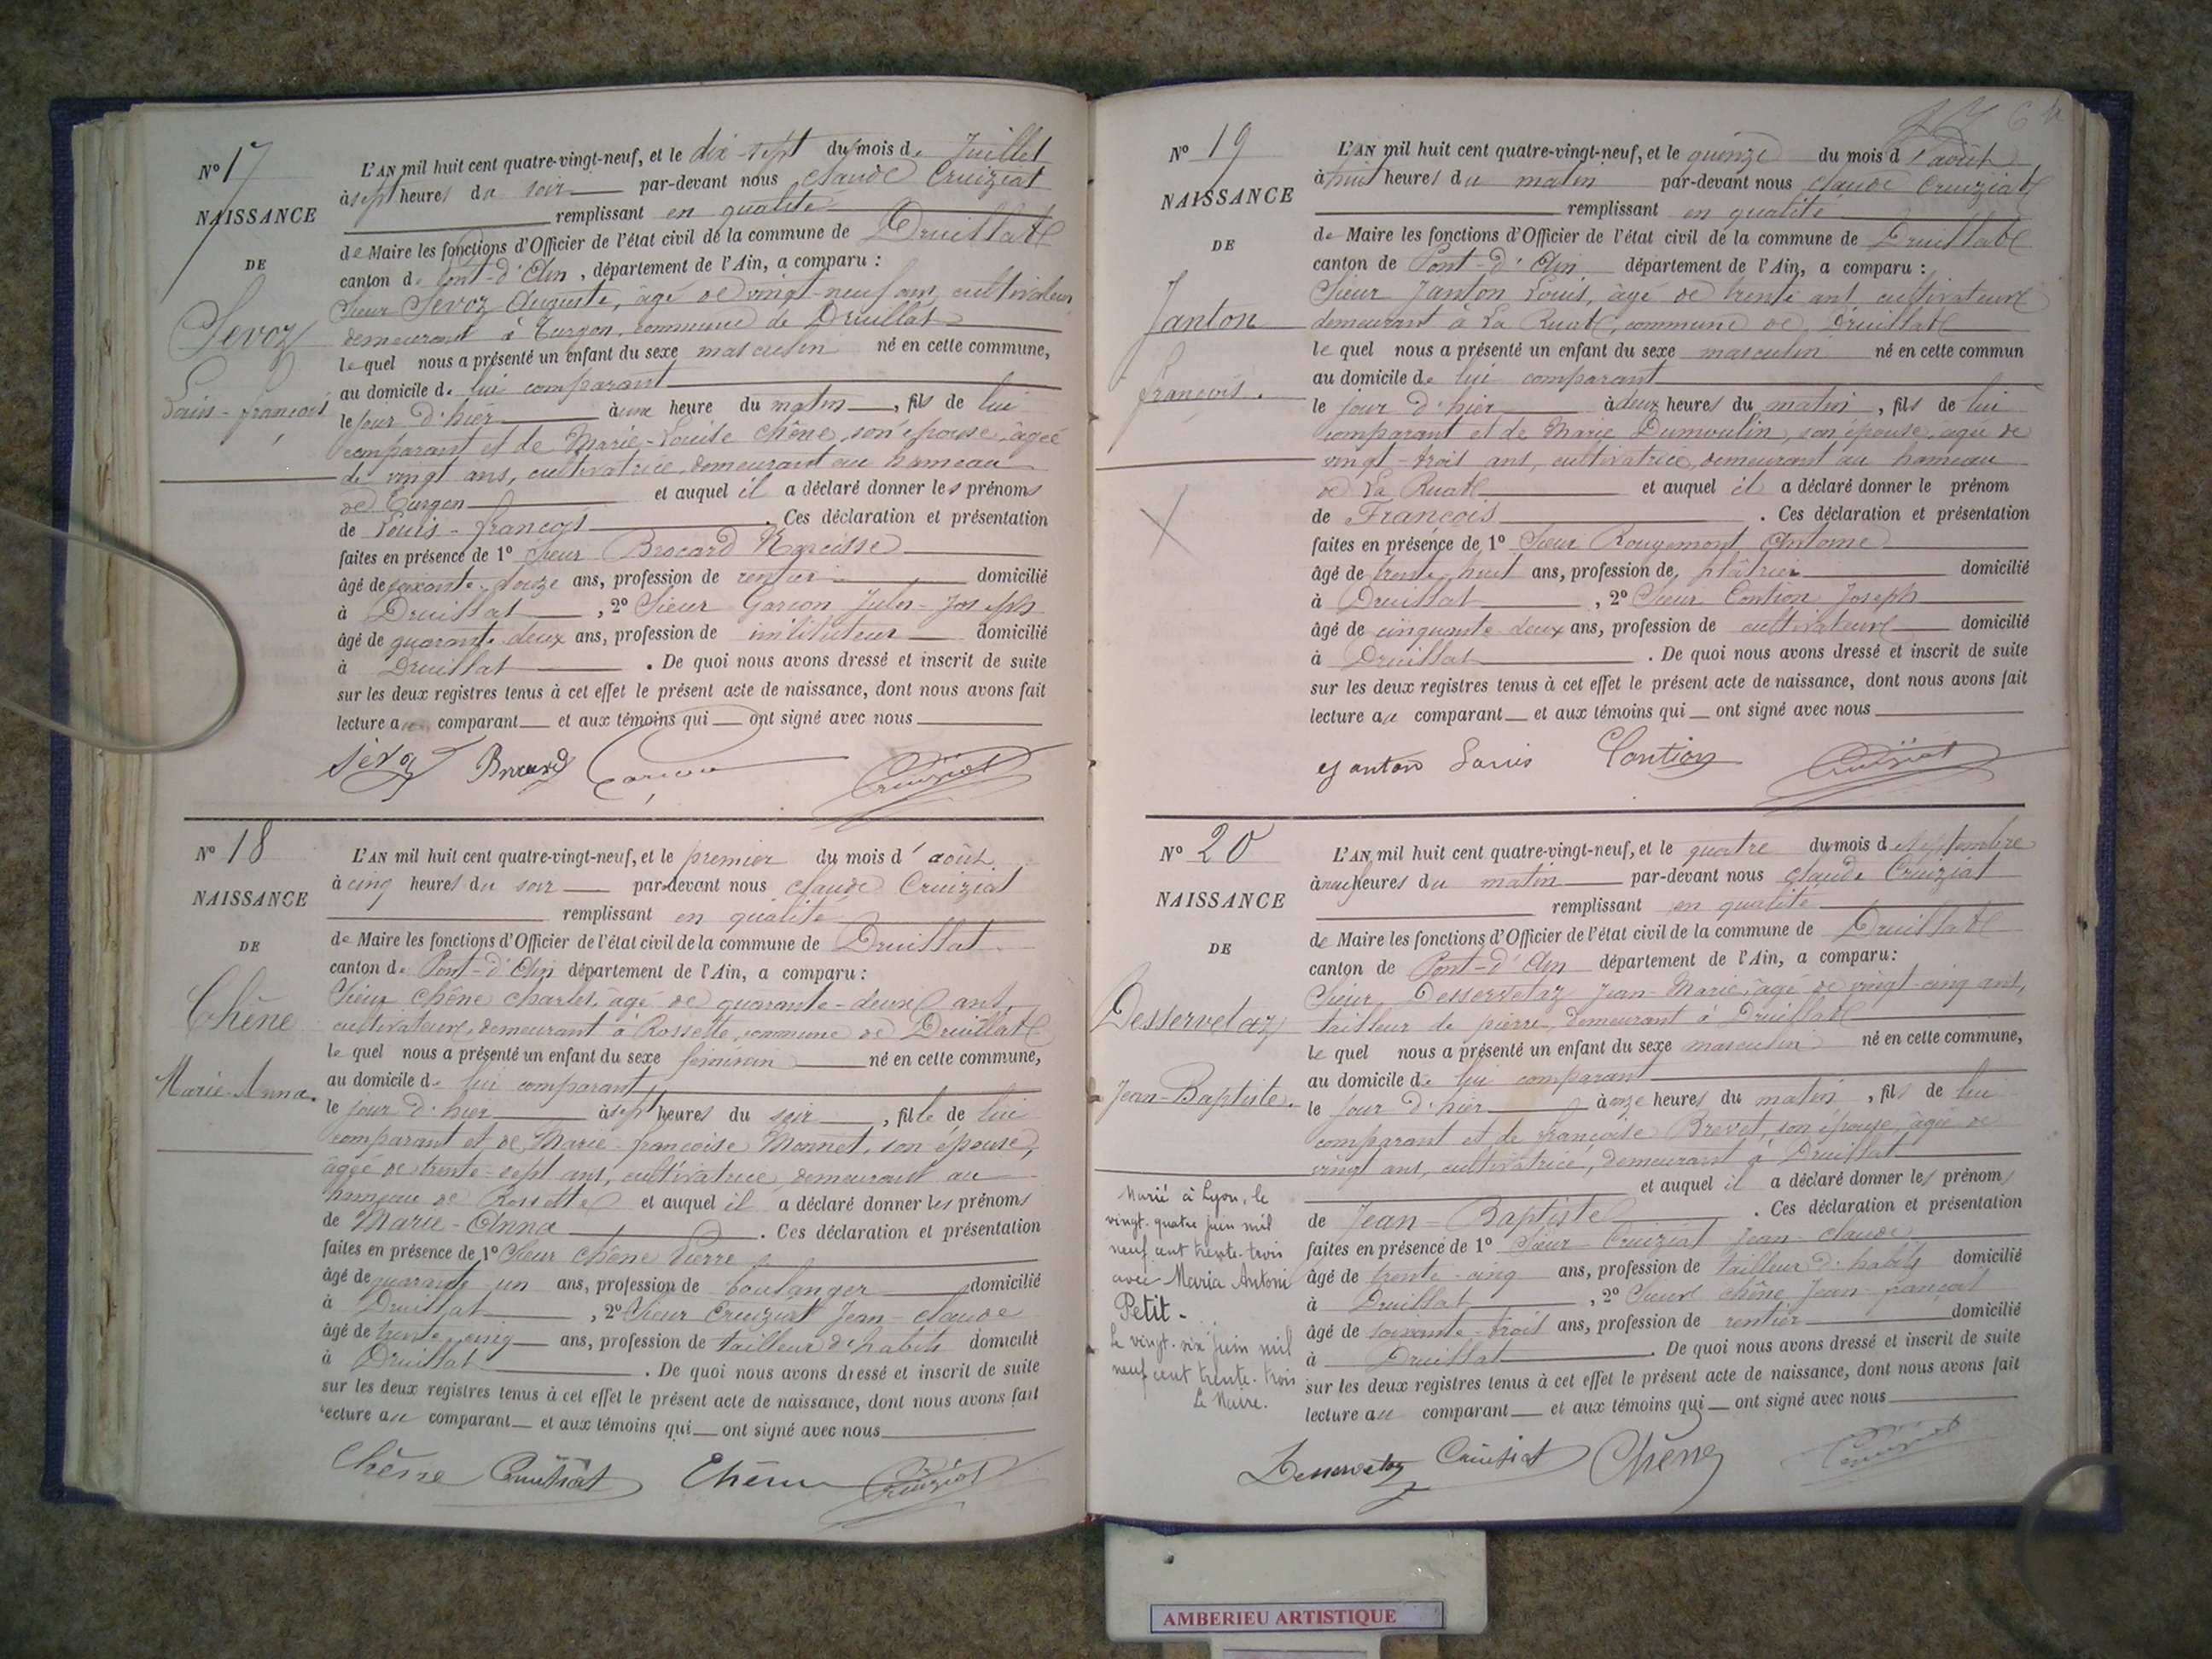 N° 17
NAISSANCE
DE
Sevoz
Louis-françois
L'AN mil huit cent quatre-vingt-neuf, et le dix-sept du mois de Juillet
à sept heures du soir par-devant nous Claude Cruiziat
remplissant en qualité
de Maire les fonctions d'Officier de l'état civil de la commune de Druillat
canton de Pont-d'Ain, département de l'Ain, a comparu :
Sieur Sevoz Auguste, âgé de vingt-neuf ans, cultivateur
demeurant à Turgon, commune de Druillat
lequel nous a présenté un enfant du sexe masculin né en cette commune,
au domicile de lui comparant
le jour d'hier à une heure du matin, fils de lui
comparant et de Marie-Louise Chêne, son épouse, âgée
de vingt ans, cultivatrice, demeurant au hameau
de Turgon et auquel il a déclaré donner les prénoms
de Louis-françois. Ces déclaration et présentation
faites en présence de 1° Sieur Brocard Narcisse
âgé de soixante-douze ans, profession de rentier domicilié
à Druillat, 2° Sieur Garcon Jules-Joseph
âgé de quarante-deux ans, profession de instituteur domicilié
à Druillat. De quoi nous avons dressé et inscrit de suite
sur les deux registres tenus à cet effet le présent acte de naissance, dont nous avons fait
lecture au comparant et aux témoins qui ont signé avec nous
Sevoz Brocard Garcon Cruiziat
N° 18
NAISSANCE
DE
Chêne
Marie-Anna.
L'AN mil huit cent quatre-vingt-neuf, et le premier du mois d'août
à cinq heures du soir par-devant nous Claude Cruiziat
remplissant en qualité
de Maire les fonctions d'Officier de l'état civil de la commune de Druillat
canton de Pont-d'Ain département de l'Ain, a comparu :
Sieur Chêne Charles, âgé de quarante-deux ans,
cultivateur, demeurant à Rossette, commune de Druillat
lequel nous a présenté un enfant du sexe féminin né en cette commune,
au domicile de lui comparant
le jour d'hier à sept heures du soir, fille de lui
comparant et de Marie-françoise Monnet, son épouse,
âgée de trente-sept ans, cultivatrice, demeurant au
hameau de Rossette et auquel il a déclaré donner les prénoms
de Marie-Anna. Ces déclaration et présentation
faites en présence de 1° Sieur Chêne Pierre
âgé de quarante-un ans, profession de boulanger domicilié
à Druillat, 2° Sieur Cruiziat Jean-Claude
âgé de trente-cinq ans, profession de tailleur d'habits domicilié
à Druillat. De quoi nous avons dressé et inscrit de suite
sur les deux registres tenus à cet effet le présent acte de naissance, dont nous avons fait
lecture au comparant et aux témoins qui ont signé avec nous
Chêne Cruiziat Chêne Cruiziat
N° 19
NAISSANCE
DE
Janton
françois.
L'AN mil huit cent quatre-vingt-neuf, et le quinze du mois d'août
à huit heures du matin par-devant nous Claude Cruiziat
remplissant en qualité
de Maire les fonctions d'Officier de l'état civil de la commune de Druillat
canton de Pont-d'Ain département de l'Ain, a comparu :
Sieur Janton Louis, âgé de trente ans, cultivateur
demeurant à La Ruat, commune de Druillat
lequel nous a présenté un enfant du sexe masculin né en cette commun
au domicile de lui comparant
le jour d'hier à deux heures du matin, fils de lui
comparant et de Marie Dumoulin, son épouse, âgée de
vingt-trois ans, cultivatrice, demeurant au hameau
de La Ruat et auquel il a déclaré donner le prénom
de François. Ces déclaration et présentation
faites en présence de 1° Sieur Rougemont Antoine
âgé de trente-huit ans, profession de plâtrier domicilié
à Druillat, 2° Sieur Contion Joseph
âgé de cinquante-deux ans, profession de cultivateur domicilié
à Druillat. De quoi nous avons dressé et inscrit de suite
sur les deux registres tenus à cet effet le présent acte de naissance, dont nous avons fait
lecture au comparant et aux témoins qui ont signé avec nous
Janton Louis Contion Cruiziat
N° 20
NAISSANCE
DE
Desservetaz
Jean-Baptiste.
Marié à Lyon, le
vingt-quatre juin mil
neuf cent trente-trois
avec Maria Antoni
Petit.
Le vingt-six juin mil
neuf cent trente-trois
Le Maire.
L'AN mil huit cent quatre-vingt-neuf, et le quatre du mois de Septembre
à neuf heures du matin par-devant nous Claude Cruiziat
remplissant en qualité
de Maire les fonctions d'Officier de l'état civil de la commune de Druillat
canton de Pont-d'Ain département de l'Ain, a comparu :
Sieur Desservetaz Jean-Marie, âgé de vingt-cinq ans,
tailleur de pierre, demeurant à Druillat
lequel nous a présenté un enfant du sexe masculin né en cette commune,
au domicile de lui comparant
le jour d'hier à onze heures du matin, fils de lui
comparant et de françoise Brevet, son épouse, âgée de
vingt ans, cultivatrice, demeurant à Druillat
et auquel il a déclaré donner les prénoms
de Jean-Baptiste. Ces déclaration et présentation
faites en présence de 1° Sieur Cruiziat Jean-Claude
âgé de trente-cinq ans, profession de tailleur d'habits domicilié
à Druillat, 2° Sieur Chêne Jean-françois
âgé de soixante-trois ans, profession de rentier domicilié
à Druillat. De quoi nous avons dressé et inscrit de suite
sur les deux registres tenus à cet effet le présent acte de naissance, dont nous avons fait
lecture au comparant et aux témoins qui ont signé avec nous
Desservetaz Cruiziat Chêne Cruiziat
AMBERIEU ARTISTIQUE